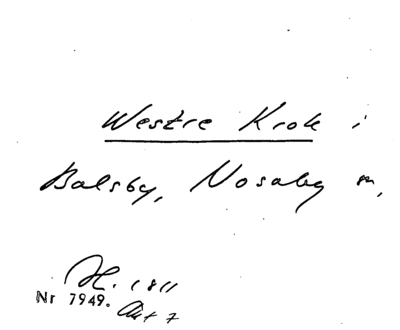 Westre Krok i
Balsby, Nosaby sn,
H. 1811
Nr 7949. Akt 7